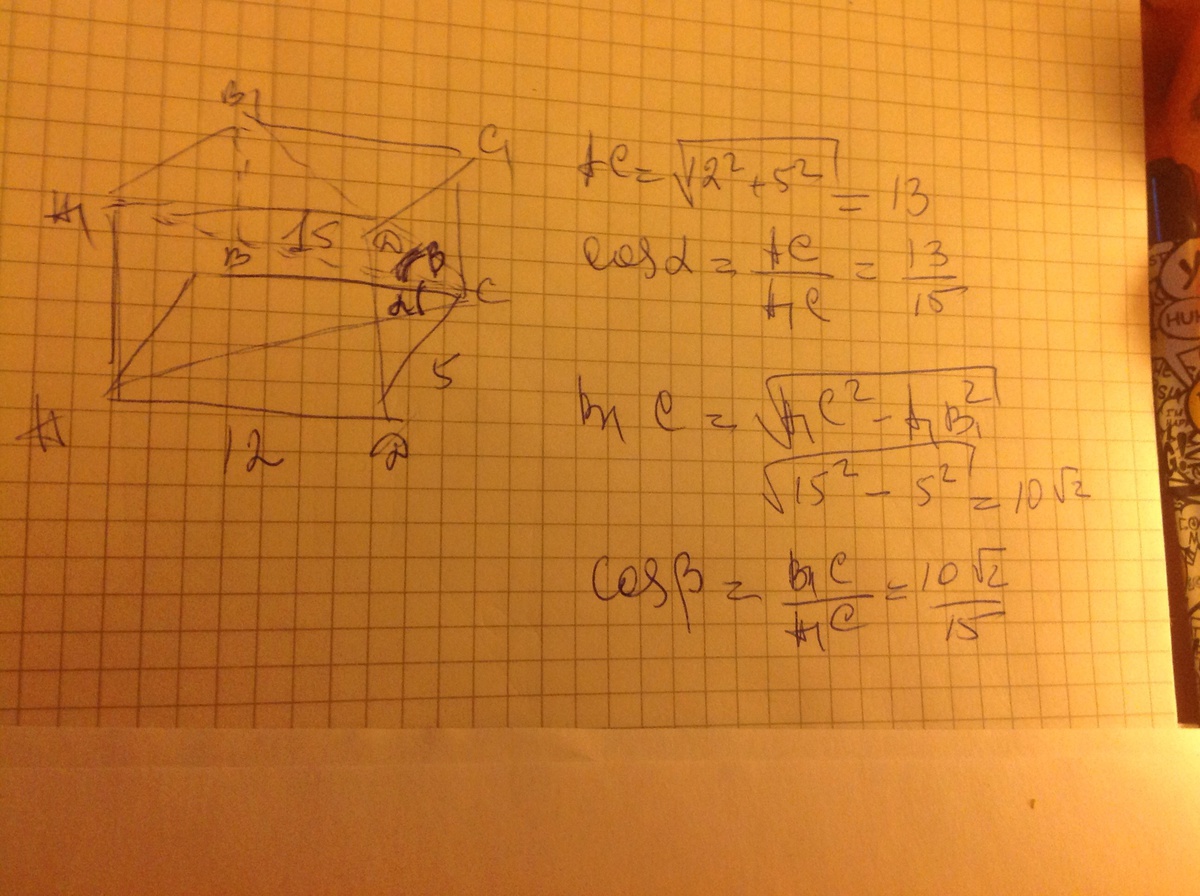 B₁
C₁
A₁
15
D₁
B
β
α
C
5
A
12
D
AC = √(12² + 5²) = 13
cos α = AC / A₁C = 13 / 15
B₁C = √(A₁C² − A₁B₁²)
√(15² − 5²) = 10√2
cos β = B₁C / A₁C = 10√2 / 15
HUM